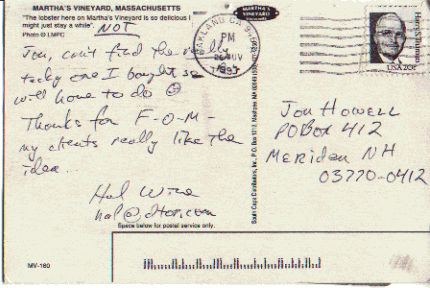 MARTHA'S VINEYARD, MASSACHUSETTS
"The lobster here on Martha's Vineyard is so delicious I
might just stay a while".
NOT
Photo © LMPC
Jon, can't find the really
tacky one I bought so
will have to do
Thanks for F-O-M-
my clients really like the
idea...
Hal Wine
hal@dtor.com
Space below for postal service only.
MV-160
MARTHA'S
VINEYARD
OAKLAND CA
PM
NOV
1995
USA 20c
Harry S. Truman
Jon Howell
PO Box 412
Meriden NH
03770-0412